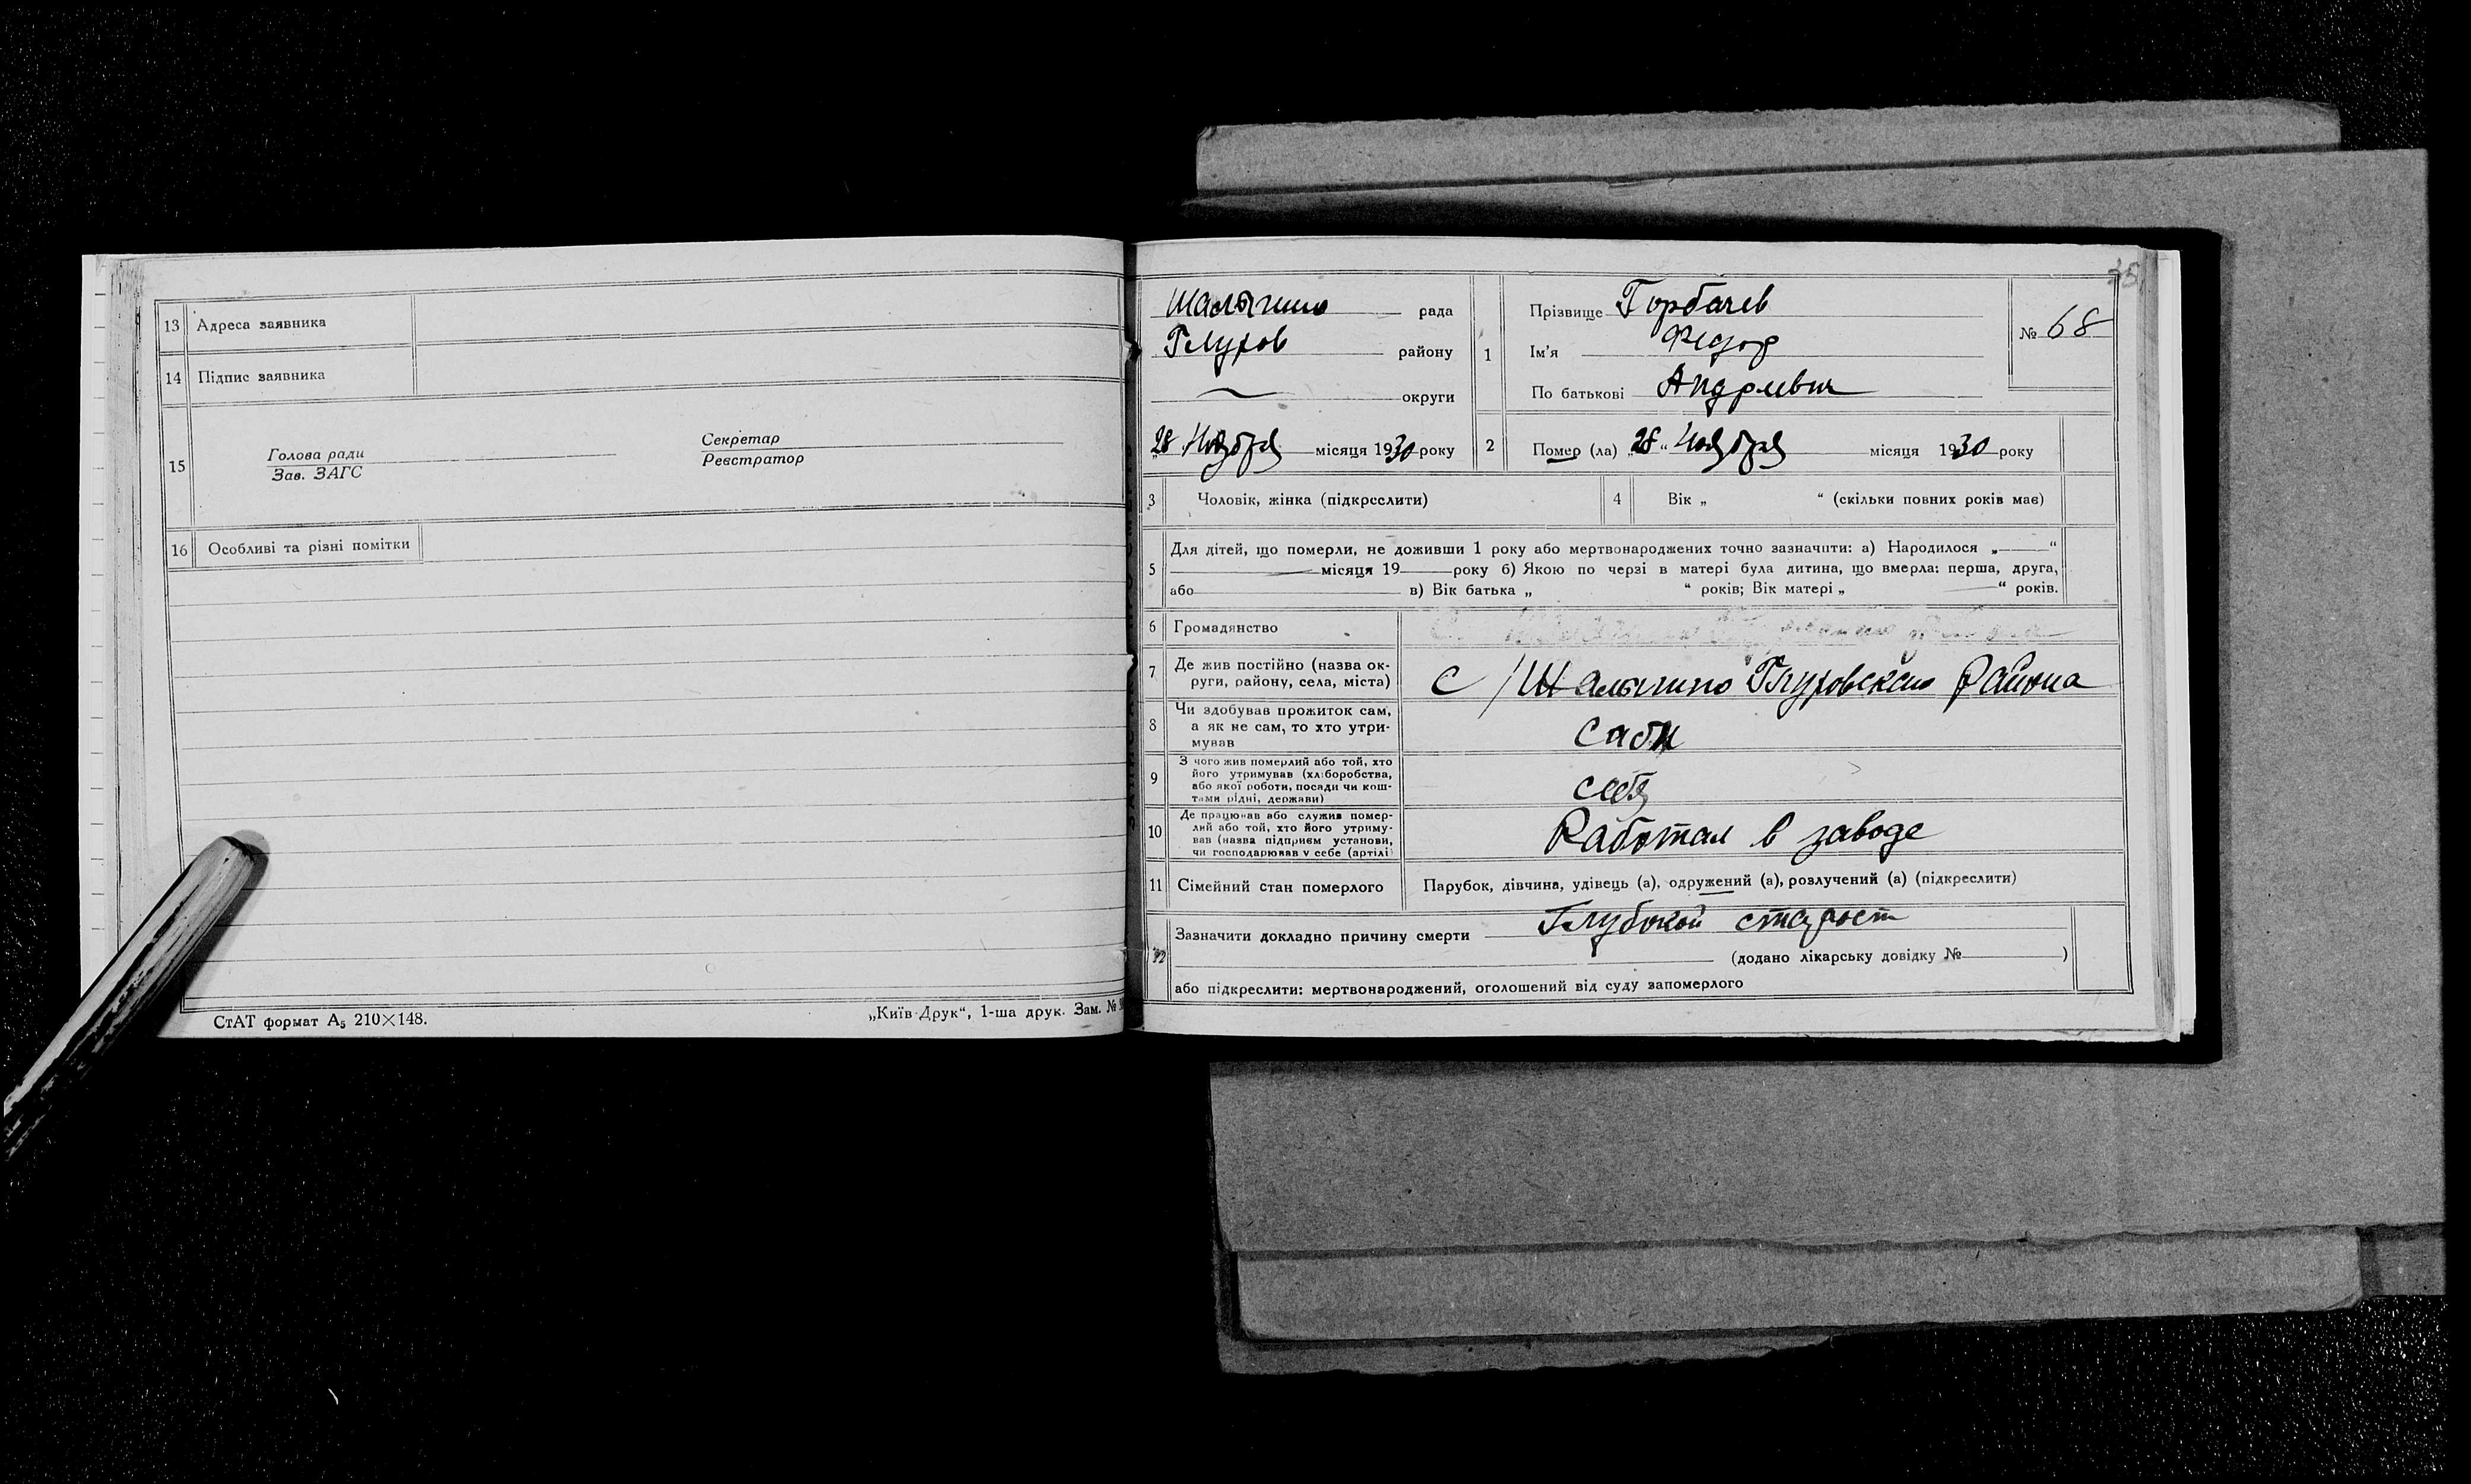 13 Адреса заявника
14 Підпис заявника
15 Голова ради
Зав. ЗАГС
Секретар
Реєстратор
16 Особливі та різні помітки
СтАТ формат А₅ 210×148.
„Київ-Друк“, 1-ша друк. Зам. №
Шалыгино рада
Глухов району
округи
„28 Ноября місяця 1930 року
1 Прізвище Горбачев
Ім'я Федор
По батькові Андреевич
№ 68
2 Помер (ла) „28“ Ноября місяця 1930 року
3 Чоловік, жінка (підкреслити)
4 Вік „ “ (скільки повних років має)
5 Для дітей, що померли, не доживши 1 року або мертвонароджених точно зазначити: а) Народилося „ “
місяця 19 року б) Якою по черзі в матері була дитина, що вмерла: перша, друга,
або в) Вік батька „ “ років; Вік матері „ “ років.
6 Громадянство
7 Де жив постійно (назва ок-
руги, району, села, міста)
с/Шалыгино Глуховского Района
8 Чи здобував прожиток сам,
а як не сам, то хто утри-
мував
9 З чого жив померлий або той, хто
його утримував (хліборобства,
або якої роботи, посади чи кош-
тами рідні, держави)
10 Де працював або служив помер-
лий або той, хто його утриму-
вав (назва підприєм установи,
чи господарював у себе (артілі
Работал в заводе
11 Сімейний стан померлого
Парубок, дівчина, удівець (а), одружений (а), розлучений (а) (підкреслити)
12 Зазначити докладно причину смерти Глубокой старост
(додано лікарську довідку № )
або підкреслити: мертвонароджений, оголошений від суду запомерлого